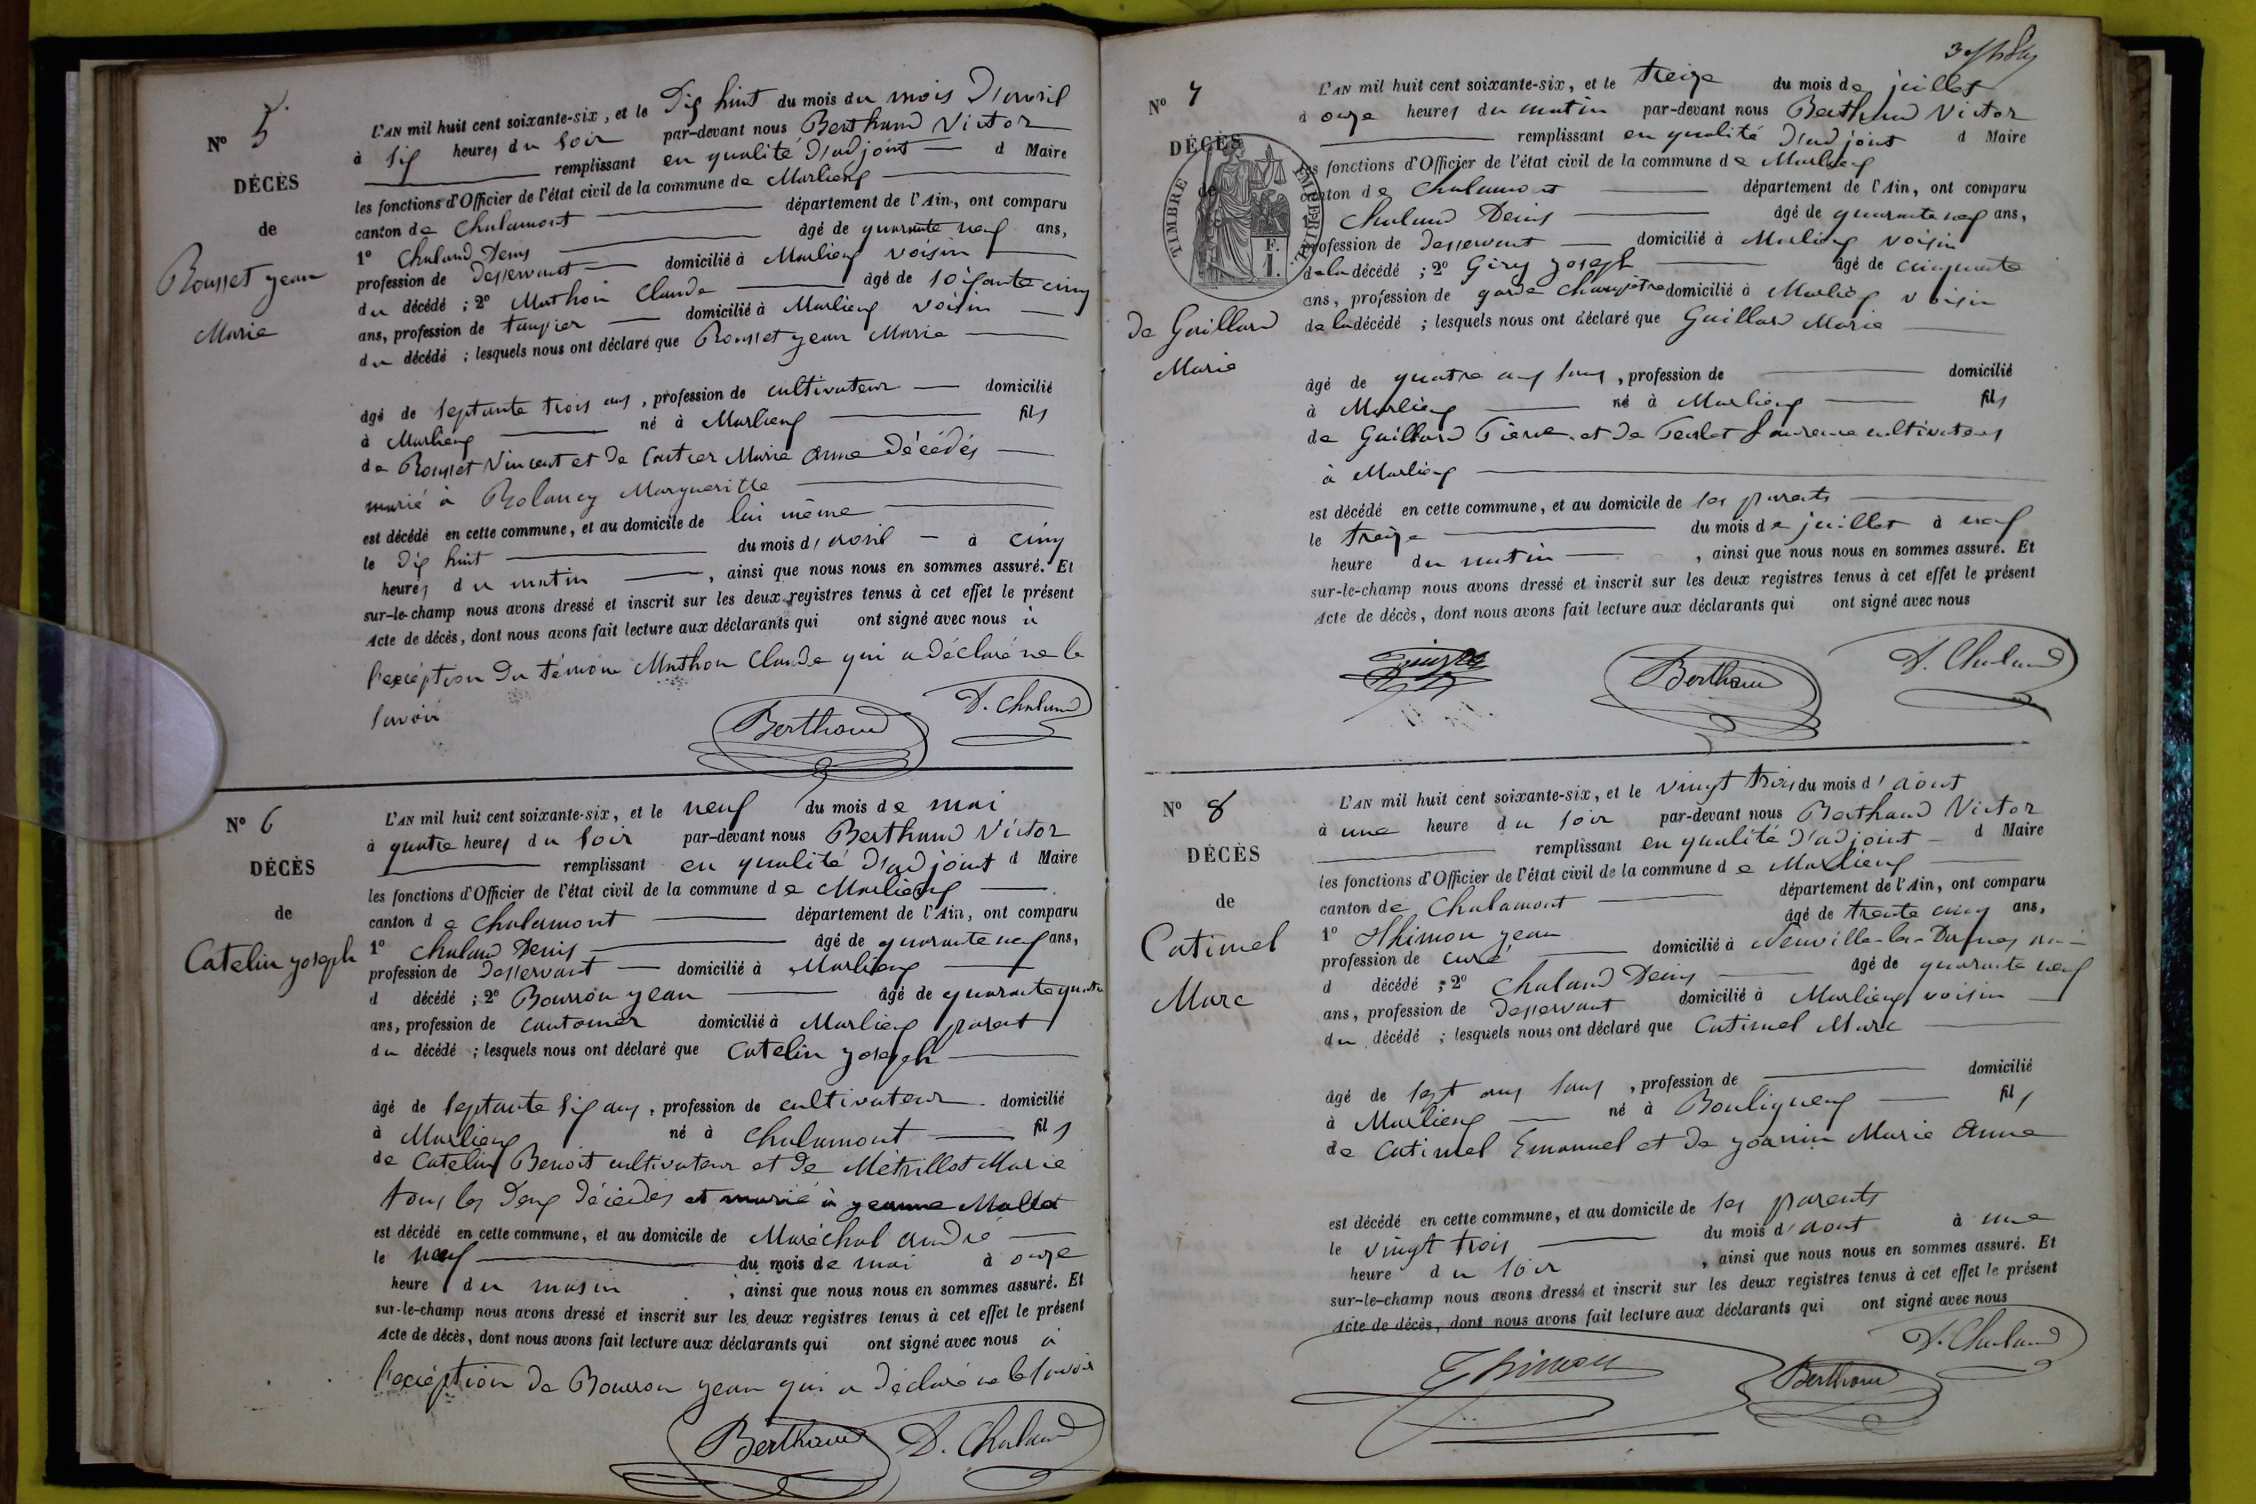 N° 5
DÉCÈS
de
Rousset jean
Marie
L'AN mil huit cent soixante-six, et le Dix huit du mois du mois D'avril
à six heures du soir par-devant nous Berthaud Victor
remplissant en qualité d'adjoint d Maire
les fonctions d'Officier de l'état civil de la commune de Marlieux
canton de Chalamont département de l'Ain, ont comparu
1° Chaland Denis âgé de quarante neuf ans,
profession de Desservant domicilié à Marlieux voisin
du décédé ; 2° Mathon Claude âgé de soixante cinq
ans, profession de taupier domicilié à Marlieux voisin
du décédé ; lesquels nous ont déclaré que Rousset jean Marie
âgé de septante trois ans, profession de cultivateur domicilié
à Marlieux né à Marlieux fils
de Rousset Vincent et de Cartier Marie Anne décédés
marié à Margueritte
est décédé en cette commune, et au domicile de lui même
le dix huit du mois d'avril à cinq
heures du matin, ainsi que nous nous en sommes assuré. Et
sur-le-champ nous avons dressé et inscrit sur les deux registres tenus à cet effet le présent
Acte de décès, dont nous avons fait lecture aux déclarants qui ont signé avec nous à
l'exception du témoin Mathon Claude qui a déclaré ne le
savoir
Berthaud D. Chaland
N° 6
DÉCÈS
de
Catelin joseph
L'AN mil huit cent soixante-six, et le neuf du mois de mai
à quatre heures du soir par-devant nous Berthaud Victor
remplissant en qualité d'adjoint d Maire
les fonctions d'Officier de l'état civil de la commune de Marlieux
canton de Chalamont département de l'Ain, ont comparu
1° Chaland Denis âgé de quarante neuf ans,
profession de Desservant domicilié à Marlieux
d décédé ; 2° Bourron jean âgé de quarante quatre
ans, profession de cantonier domicilié à Marlieux parent
du décédé ; lesquels nous ont déclaré que Catelin joseph
âgé de septante six ans, profession de cultivateur domicilié
à Marlieux né à Chalamont fils
de Catelin Benoit cultivateur et de Métrillot Marie
tous les deux décédés et marié à jeanne Mallet
est décédé en cette commune, et au domicile de Maréchal andré
le neuf du mois de mai à onze
heure du matin, ainsi que nous nous en sommes assuré. Et
sur-le-champ nous avons dressé et inscrit sur les deux registres tenus à cet effet le présent
Acte de décès, dont nous avons fait lecture aux déclarants qui ont signé avec nous à
l'exception de Bourron jean qui a déclaré ne le savoir
Berthaud D. Chaland
N° 7
DÉCÈS
de
TIMBRE IMPÉRIAL
F.
1.
de Gaillard
Marie
L'AN mil huit cent soixante-six, et le treize du mois de juillet
à onze heures du matin par-devant nous Berthaud Victor
remplissant en qualité d'adjoint d Maire
les fonctions d'Officier de l'état civil de la commune de Marlieux
canton de Chalamont département de l'Ain, ont comparu
1° Chaland Denis âgé de quarante neuf ans,
profession de Desservant domicilié à Marlieux voisin
de la décédé ; 2° Giry joseph âgé de cinquante
ans, profession de garde champêtre domicilié à Marlieux voisin
de la décédé ; lesquels nous ont déclaré que Gaillard Marie
âgé de quatre ans sans, profession de domicilié
à Marlieux né à Marlieux fils
de Gaillard Pierre et de cultivateurs
à Marlieux
est décédé en cette commune, et au domicile de ses parents
le treize du mois de juillet à neuf
heure du matin, ainsi que nous nous en sommes assuré. Et
sur-le-champ nous avons dressé et inscrit sur les deux registres tenus à cet effet le présent
Acte de décès, dont nous avons fait lecture aux déclarants qui ont signé avec nous
Berthaud D. Chaland
N° 8
DÉCÈS
de
Catimel
Marc
L'AN mil huit cent soixante-six, et le vingt trois du mois d'aout
à une heure du soir par-devant nous Berthaud Victor
remplissant en qualité d'adjoint d Maire
les fonctions d'Officier de l'état civil de la commune de Marlieux
canton de Chalamont département de l'Ain, ont comparu
1° Thimon jean âgé de trente cinq ans,
profession de curé domicilié à Neuville-les-Dames
d décédé ; 2° Chaland Denis âgé de quarante neuf
ans, profession de Desservant domicilié à Marlieux voisin
du décédé ; lesquels nous ont déclaré que Catimel Marc
âgé de sept ans sans, profession de domicilié
à Marlieux né à Bouligneux fils
de Catimel Emanuel et de Marie Anne
est décédé en cette commune, et au domicile de ses parents
le vingt trois du mois d'aout à une
heure du soir, ainsi que nous nous en sommes assuré. Et
sur-le-champ nous avons dressé et inscrit sur les deux registres tenus à cet effet le présent
Acte de décès, dont nous avons fait lecture aux déclarants qui ont signé avec nous
D. Chaland
Thimon Berthaud